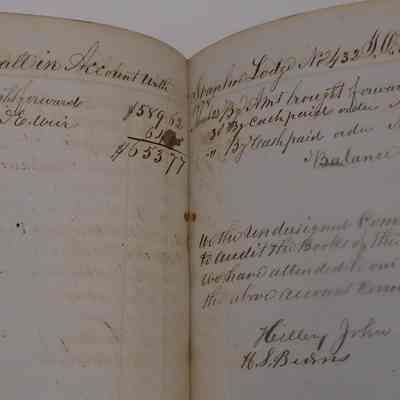 alt in Account With
ght forward $589 62
E. Weir
$653 77
Lodge No 432 I.O.
By Amt brought forward
By Cash paid order
" By Cash paid order
Balance
We the Undersigned Com
to audit the Books of the
We hand attended to our
the above account Corre
Hilley John
H.S. Burns